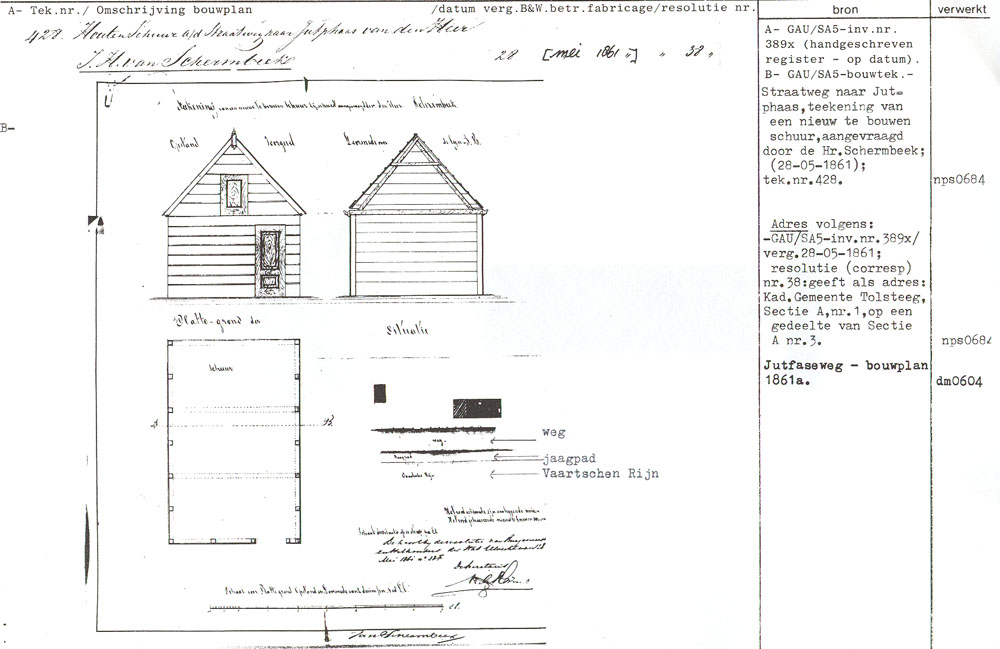 A- Tek.nr./ Omschrijving bouwplan /datum verg.B&W.betr.fabricage/resolutie nr. bron verwerkt
428. Houten Schuur a/d Straatweg naar Jutphaas van den Heer
J. H. van Schermbeek 28 [mei 1861 "] " 38 "
A- GAU/SA5-inv.nr.
389x (handgeschreven
register - op datum).
B- GAU/SA5-bouwtek.-
Straatweg naar Jut=
phaas,teekening van
een nieuw te bouwen
schuur,aangevraagd
door de Hr.Schermbeek;
(28-05-1861);
tek.nr.428. nps0684
Adres volgens:
-GAU/SA5-inv.nr.389x/
verg.28-05-1861;
resolutie (corresp)
nr.38:geeft als adres:
Kad.Gemeente Tolsteeg,
Sectie A,nr.1,op een
gedeelte van Sectie
A nr.3. nps0684
Jutfaseweg - bouwplan
1861a. dm0604
B-
Teekening van een nieuw te bouwen schuur Schermbeek
Opstand Voorgevel Doorsnede de lijn A.B.
Platte-grond der
Situatie
schuur
A B
weg
weg
jaagpad
Vaartschen Rijn
De Secretaris
el.